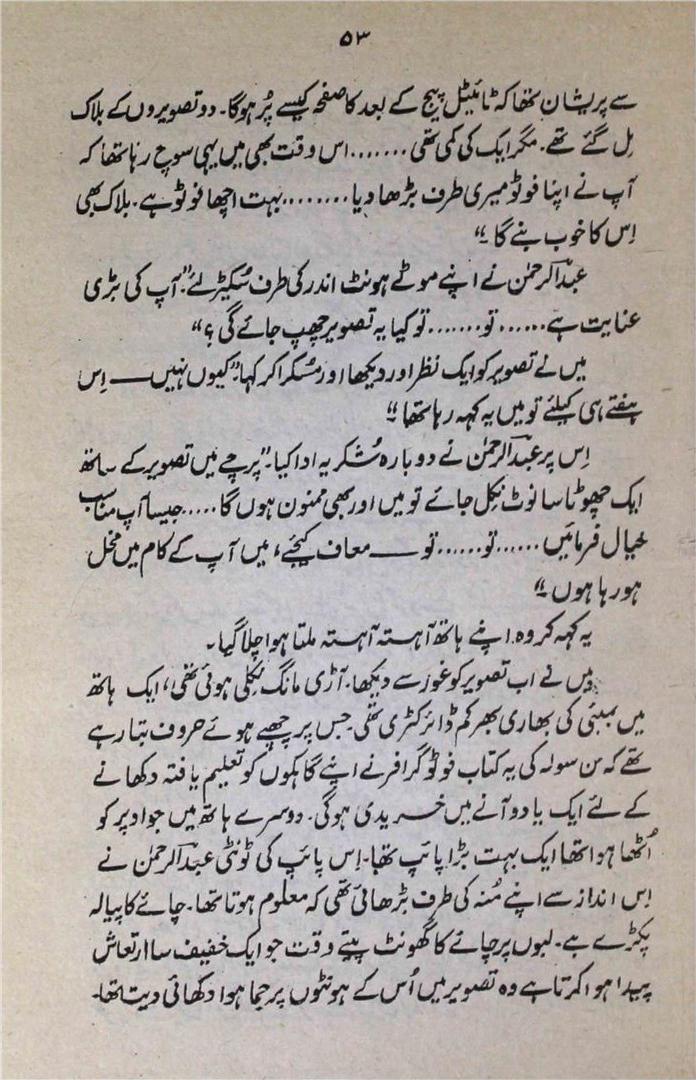 ۵۳
سے پریشان تھا کہ ٹائیٹل پیج کے بعد کا صفحہ کیسے پُر ہوگا۔ دو تصویروں کے بلاک
مِل گئے تھے۔ مگر ایک کی کمی تھی ....... اس وقت بھی میں یہی سوچ رہا تھا کہ
آپ نے اپنا فوٹو میری طرف بڑھا دیا ........ بہت اچھا فوٹو ہے۔ بلاک بھی
اِس کا خوب بنے گا۔“
عبدالرحمٰن نے اپنے موٹے ہونٹ اندر کی طرف سُکیڑ لئے۔”آپ کی بڑی
عنایت ہے ...... تو ....... تو کیا یہ تصویر چھپ جائے گی ؟“
میں نے تصویر کو ایک نظر اور دیکھا اور مُسکرا کر کہا۔”کیوں نہیں —— اِس
ہفتے ہی کیلئے تو میں یہ کہہ رہا تھا۔“
اِس پر عبدالرحمٰن نے دوبارہ شُکریہ ادا کیا۔”پرچے میں تصویر کے ساتھ
ایک چھوٹا سا نوٹ نِکل جائے تو میں اور بھی ممنون ہوں گا ..... جیسا آپ مناسب
خیال فرمائیں ...... تو ...... تو —— معاف کیجئے، میں آپ کے کام میں مخل
ہو رہا ہوں۔“
یہ کہہ کر وہ اپنے ہاتھ آہستہ آہستہ ملتا ہوا چلا گیا۔
میں نے اب تصویر کو غور سے دیکھا۔ آڑی مانگ نِکلی ہوئی تھی، ایک ہاتھ
میں بمبئی کی بھاری بھر کم ڈائرکٹری تھی جس پر چھپے ہوئے حروف بتا رہے
تھے کہ سن سولہ کی یہ کتاب فوٹو گرافر نے اپنے گاہکوں کو تعلیم یافتہ دکھانے
کے لئے ایک یا دو آنے میں خریدی ہوگی۔ دوسرے ہاتھ میں جو اوپر کو
اُٹھا ہوا تھا ایک بہت بڑا پائپ تھا۔ اِس پائپ کی ٹونٹی عبدالرحمٰن نے
اِس انداز سے اپنے مُنہ کی طرف بڑھائی تھی کہ معلوم ہوتا تھا۔ چائے کا پیالہ
پکڑے ہے۔ لبوں پر چائے کا گھونٹ پیتے وقت جو ایک خفیف سا ارتعاش
پیدا ہوا کرتا ہے وہ تصویر میں اُس کے ہونٹوں پر جما ہوا دکھائی دیتا تھا۔